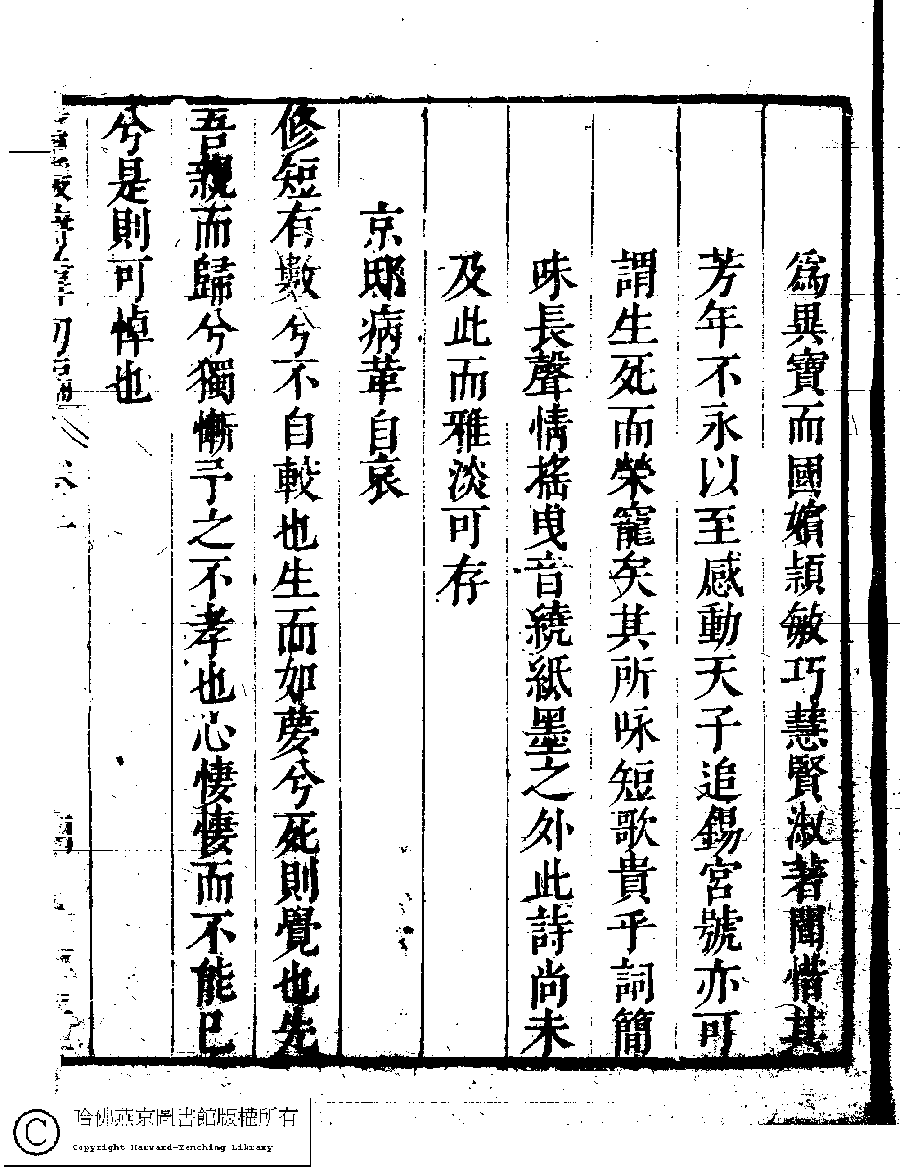 爲異寶而國嬪頴敏巧慧賢淑著聞惜其
芳年不永以至感動天子追錫宮號亦可
謂生死而榮寵矣其所咏短歌貴乎詞簡
味長聲情搖曳音繞紙墨之外此詩尚未
及此而雅淡可存
京邸病革自哀
修短有數兮不自較也生而如夢兮死則覺也先
吾親而歸兮獨慚予之不孝也心悽悽而不能已
兮是則可悼也
哈佛燕京圖書館版權所有
Copyright Harvard-Yenching Library